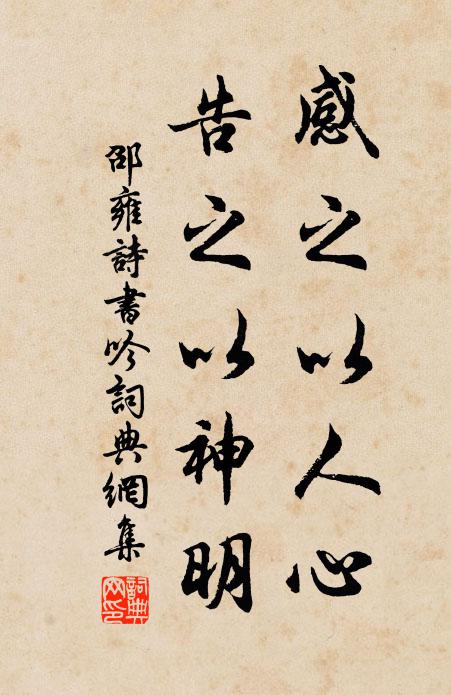 感之以人心
告之以神明
邵雍詩書吟詞典網集
詞典網印